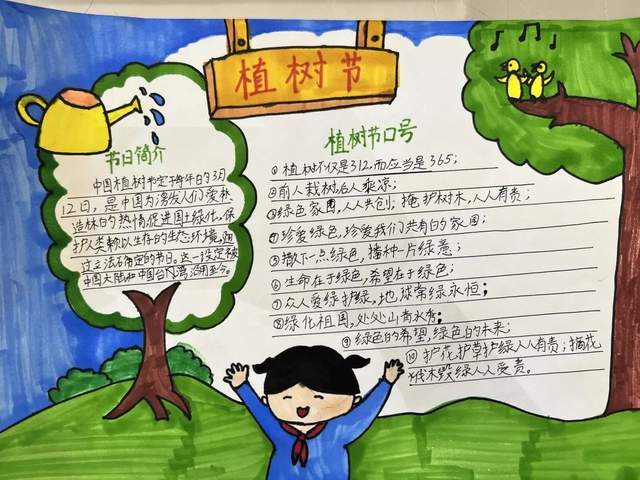 植树节
节日简介
中国植树节定于每年的3月
12日，是中国为激发人们爱林、
造林的热情，促进国土绿化，保
护人类赖以生存的生态环境，通
过立法确定的节日。这一设定被
中国大陆和中国台湾沿用至今。
植树节口号
①植树不仅是312，而应当是365；
②前人栽树后人乘凉；
③绿色家园，人人共创；掩护树木，人人有责；
④珍爱绿色，珍爱我们共有的家园；
⑤撒下一点绿色，播种一片绿意；
⑥生命在于绿色，希望在于绿色；
⑦众人爱绿护绿，地球常绿永恒；
⑧绿化祖国，处处山青水秀；
⑨绿色的希望，绿色的未来；
⑩护花护草护绿人人有责；摘花
伐木毁绿人人受责。